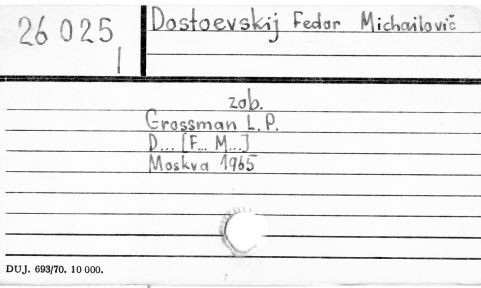 26 025
I
Dostoevskij Fedor Michailovič
zob.
Grossman L. P.
D... [F... M...]
Moskva 1965
DUJ. 693/70. 10 000.